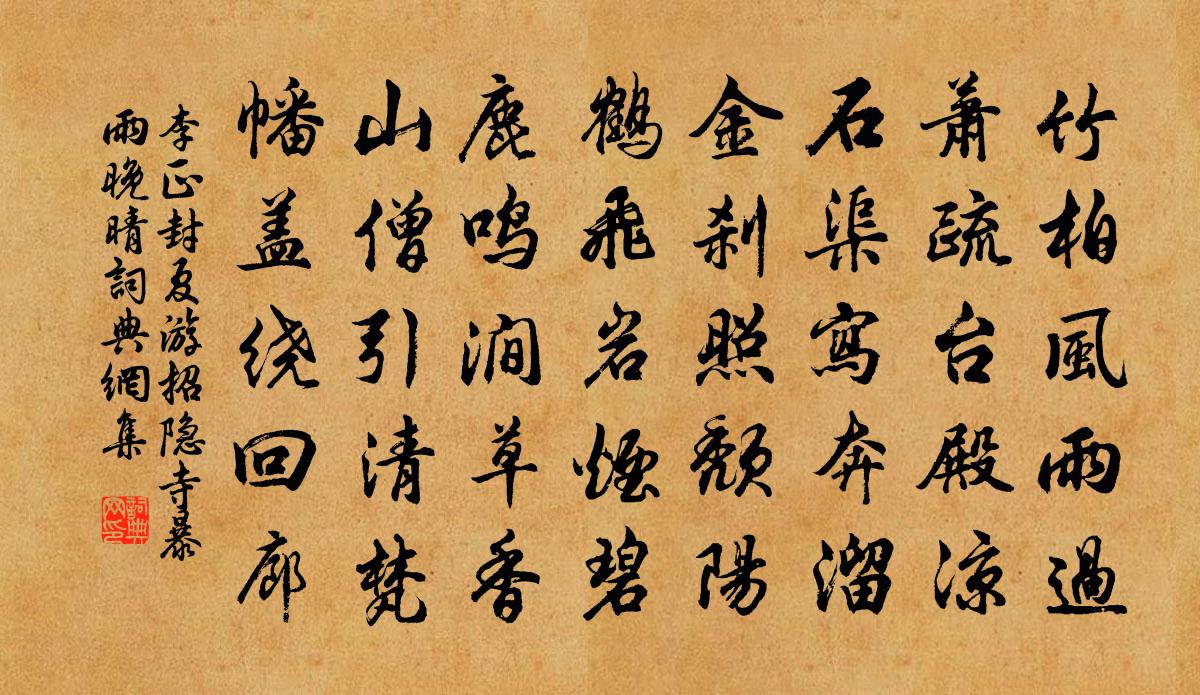 竹柏風雨過
蕭疏台殿涼
石渠寫奔溜
金刹照頹陽
鶴飛岩煙碧
鹿鳴澗草香
山僧引清梵
幡盖绕回廊
李正封夏游招隐寺暴
雨晚晴詞典網集
詞典
网印